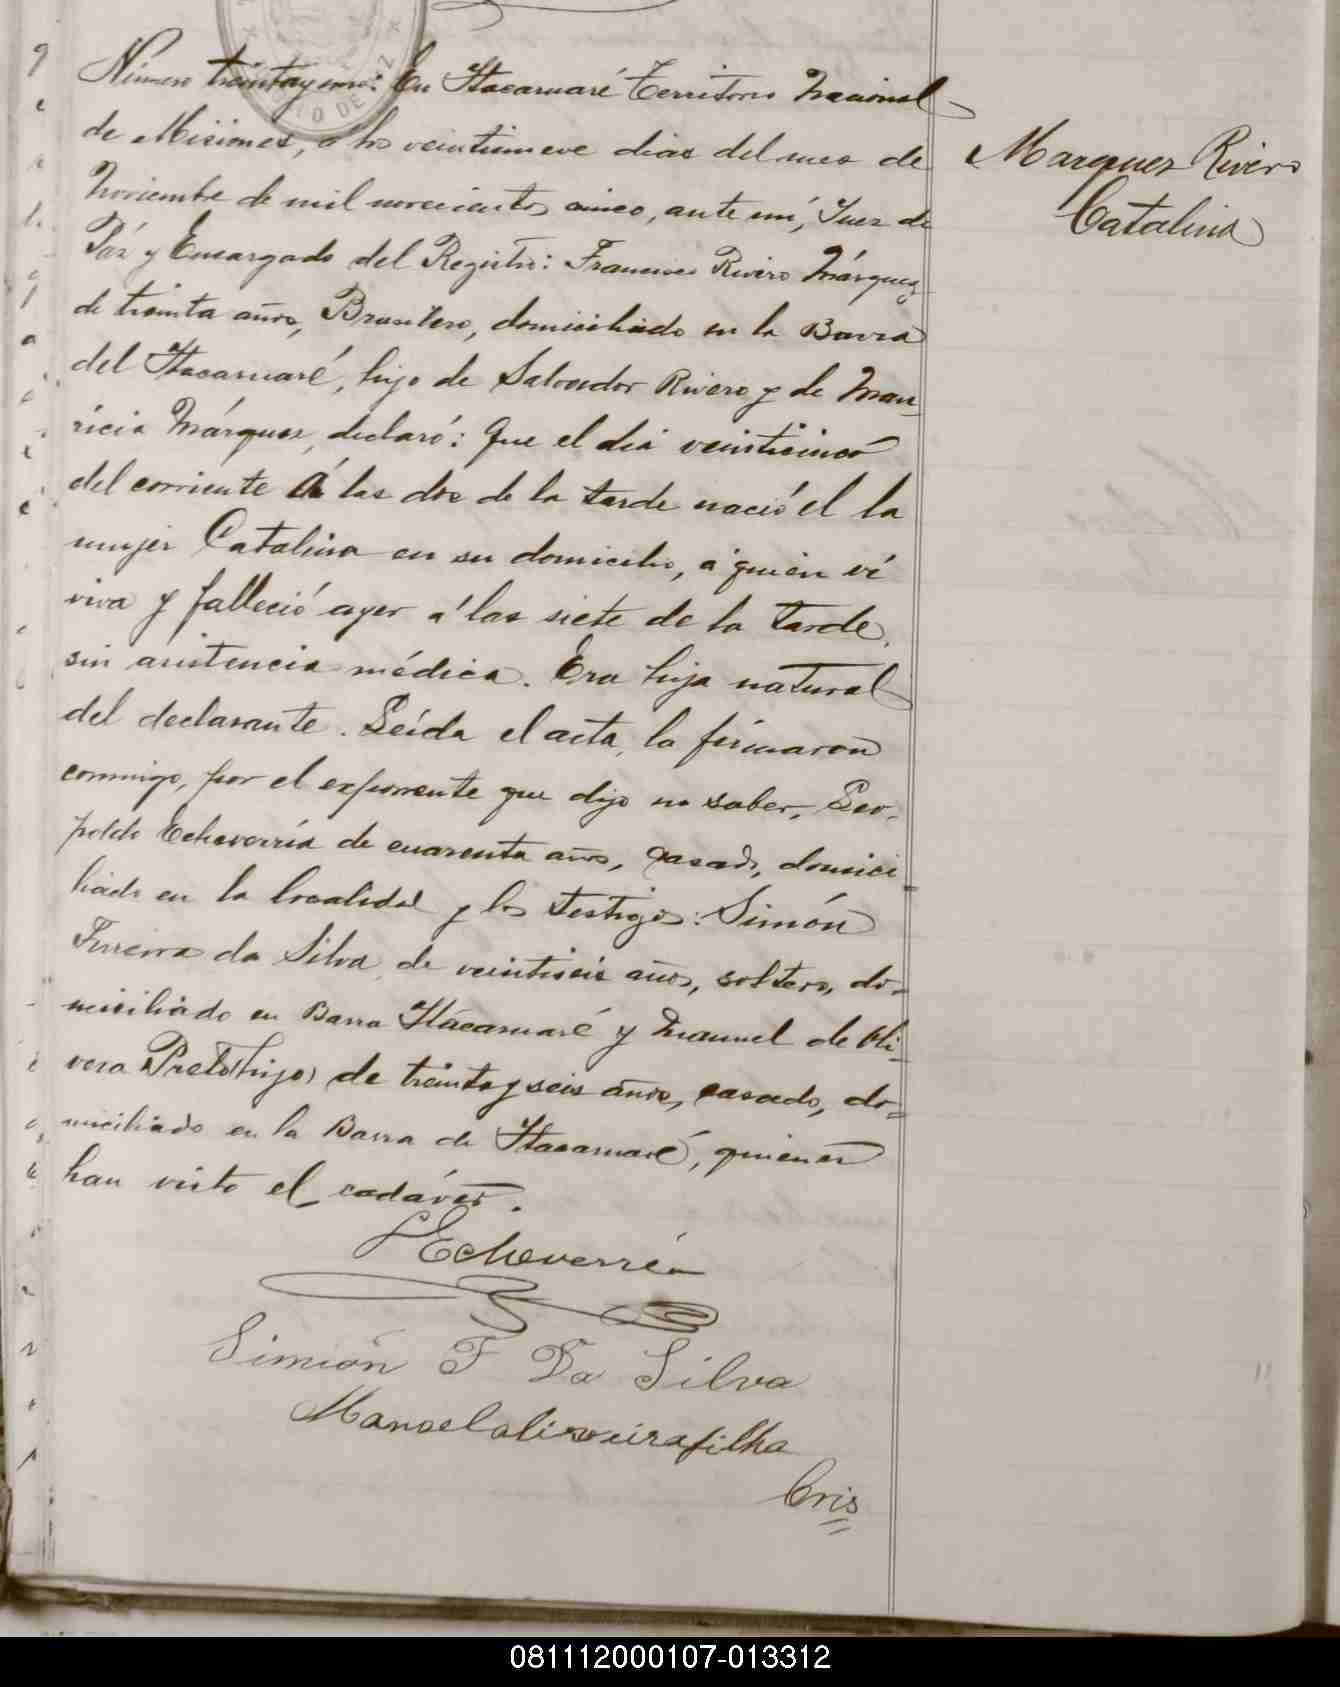 Número treinta y uno: En Itacaruaré Territorio Nacional
de Misiones, á los veintinueve dias del mes de
Noviembre de mil novecientos cinco, ante mí, Juez de
Páz y Encargado del Registro: Francisco Rivero Márquez,
de treinta años, Brasilero, domiciliado en la Barra
del Itacaruaré, hijo de Salvador Rivero y de Mau-
ricia Márquez, declaró: Que el dia veinticinco
del corriente Á las dos de la tarde nació el la
mujer Catalina en su domicilio, á quién ví
viva y falleció ayer á las siete de la tarde,
sin asistencia médica. Era hija natural
del declarante. Leída el acta, la firmaron
conmigo, por el exponente que dijo no saber, Leo-
poldo Echeverría de cuarenta años, casado, domici
liado en la localidad y los testigos: Simón
Ferreira da Silva, de veintiseis años, soltero, do-
miciliado en Barra Itácaruaré y Manuel de Oli-
vera Preto (hijo) de treinta y seis años, casado, do-
miciliado en la Barra de Itacaruaré, quienes
han visto el cadáver.
Marquez Rivero
Catalina
LEcheverría
Simión F Da Silva
Manoel oliveira filho
Cris
081112000107-013312